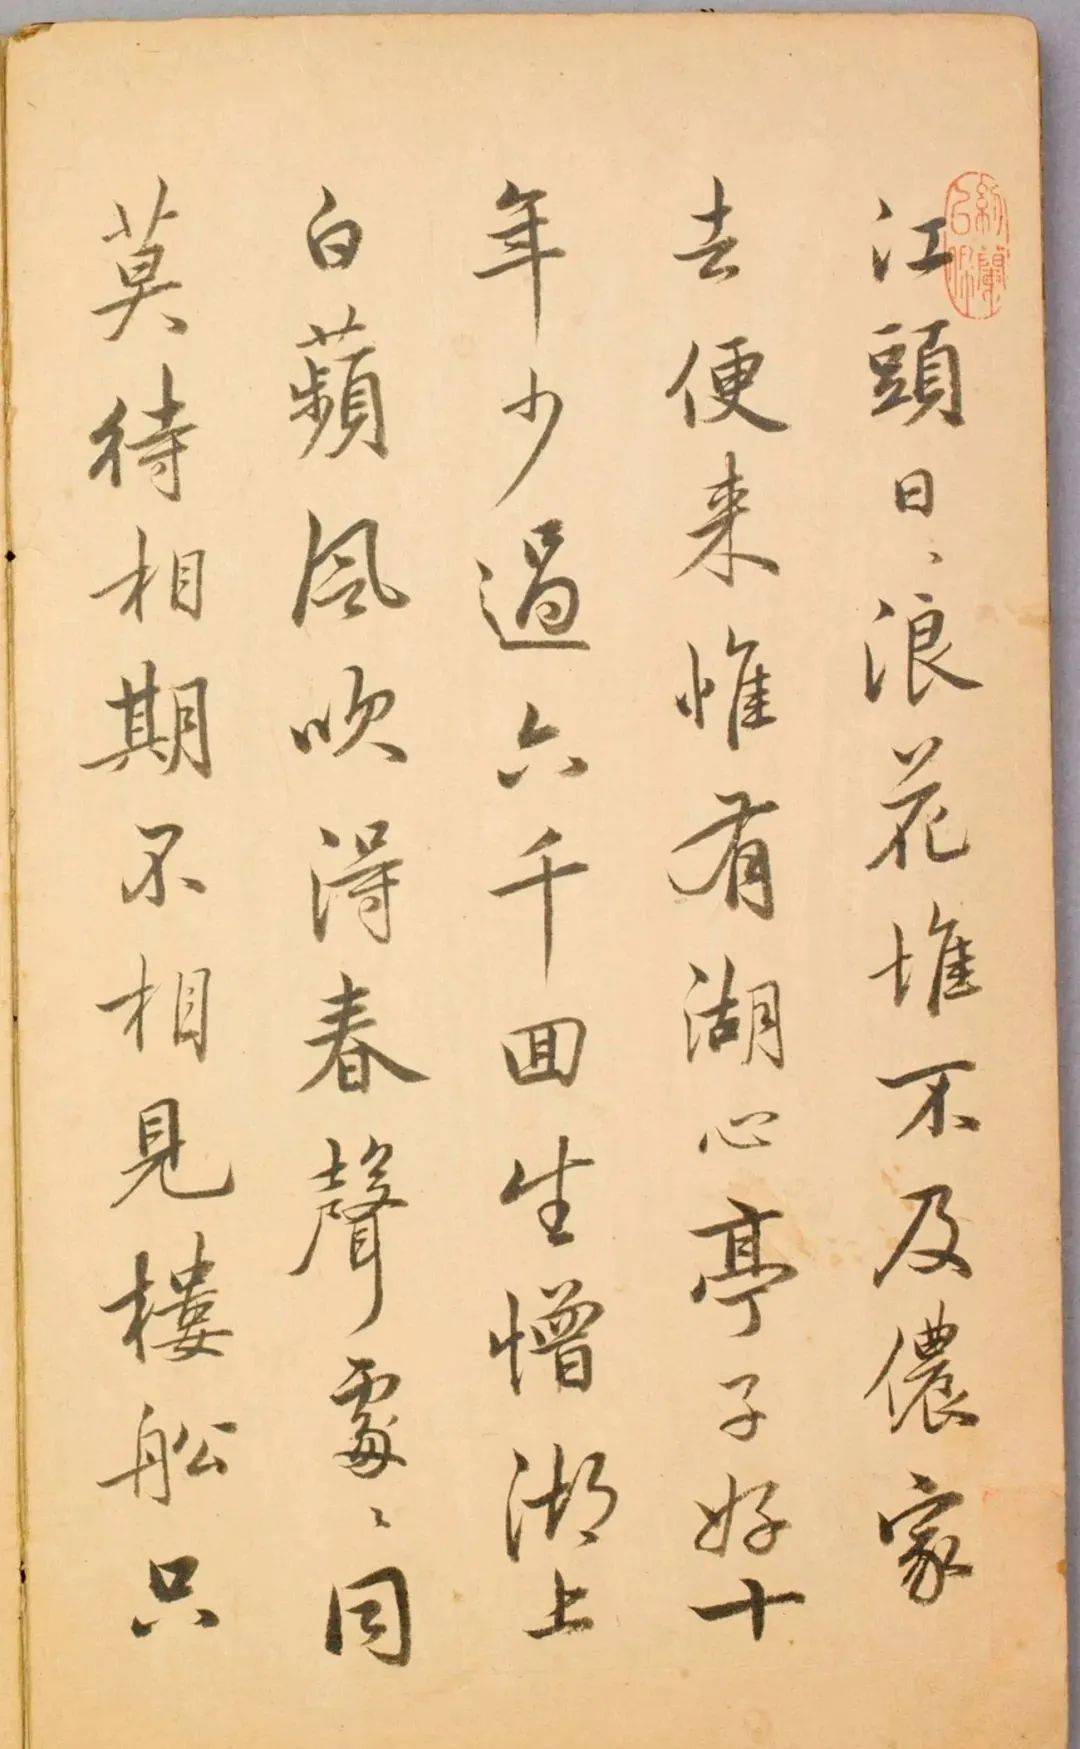 江頭日、浪花堆不及儂家
去便来惟有湖心亭子好十
年少過六千回生憎湖上
白蘋風吹得春聲處、同
莫待相期不相見樓船只